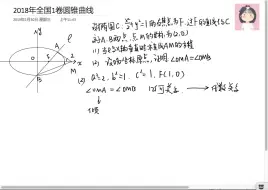 2018年全国1卷圆锥曲线
设椭圆C: x²/2+y²=1的右焦点为F, 过F的直线l与C
交于A,B两点, 点M的坐标为(2,0)
(1) 当l与x轴垂直时,求直线AM的方程
(2) 设O为坐标原点, 证明: ∠OMA=∠OMB
(1) a²=2, b²=1, c²=1, F(1,0)
∠OMA=∠OMB